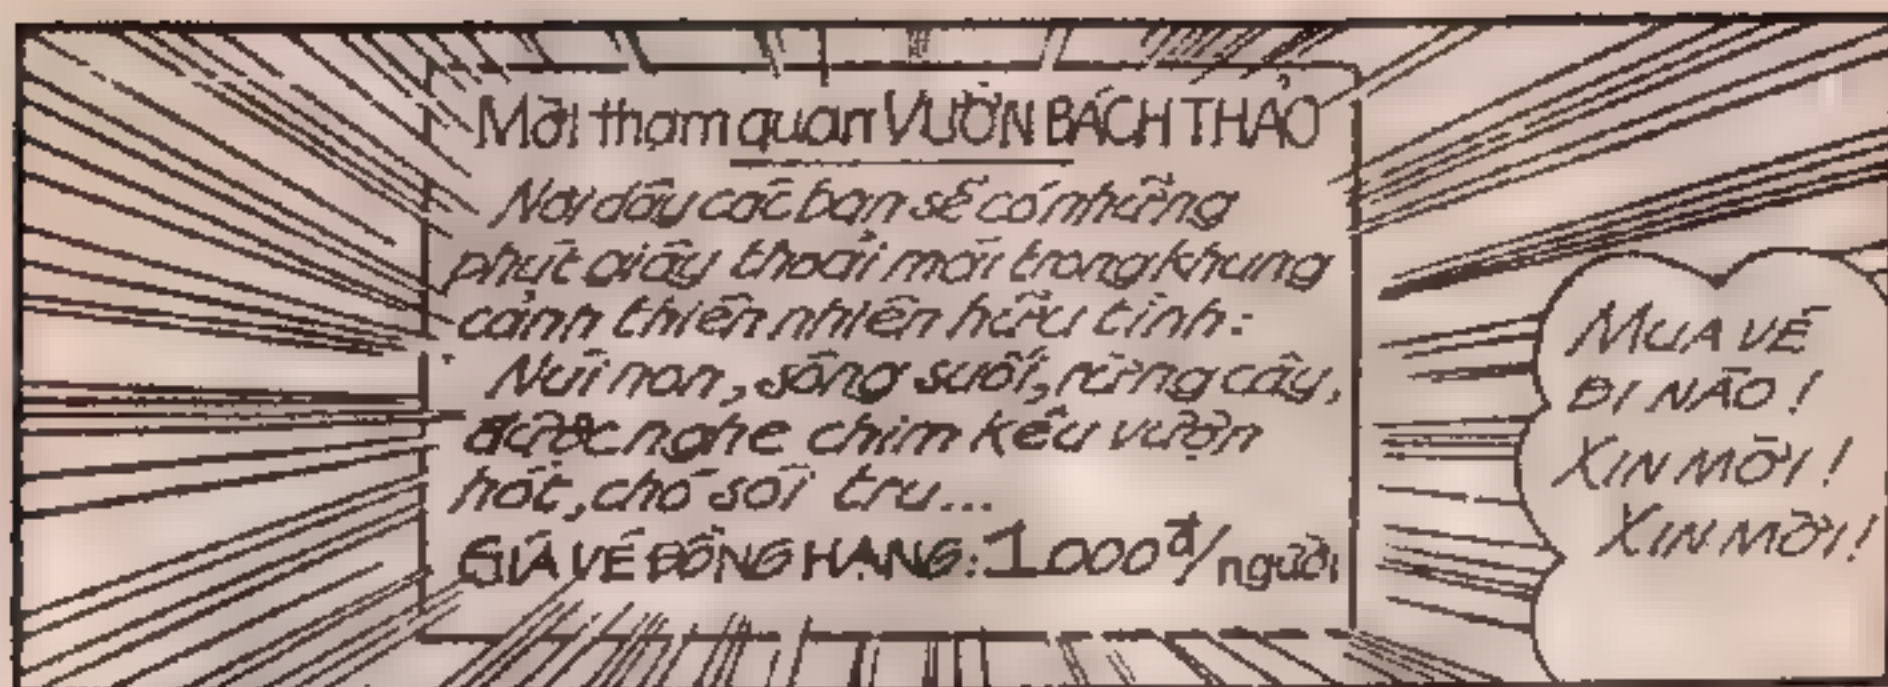 Mời tham quan VƯỜN BÁCH THẢO
Nơi đây các bạn sẽ có những
phút giây thoải mái trong khung
cảnh thiên nhiên hữu tình:
Núi non, sông suối, rừng cây,
được nghe chim kêu vượn
hót, chó sói tru...
GIÁ VÉ ĐỒNG HẠNG: 1000đ/người
MUA VÉ
ĐI NÀO!
XIN MỜI!
XIN MỜI!